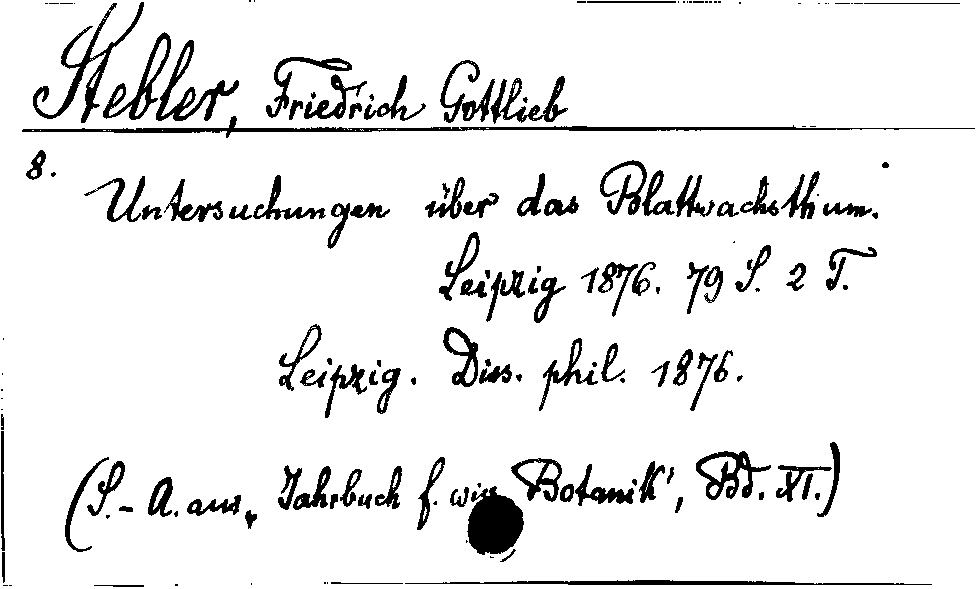 Stebler, Friedrich Gottlieb
8.
Untersuchungen über das Blattwachsthum.
Leipzig 1876. 79 S. 2 T.
Leipzig. Diss. phil. 1876.
(S.-A. aus „Jahrbuch f. wiss Botanik", Bd. XI.)